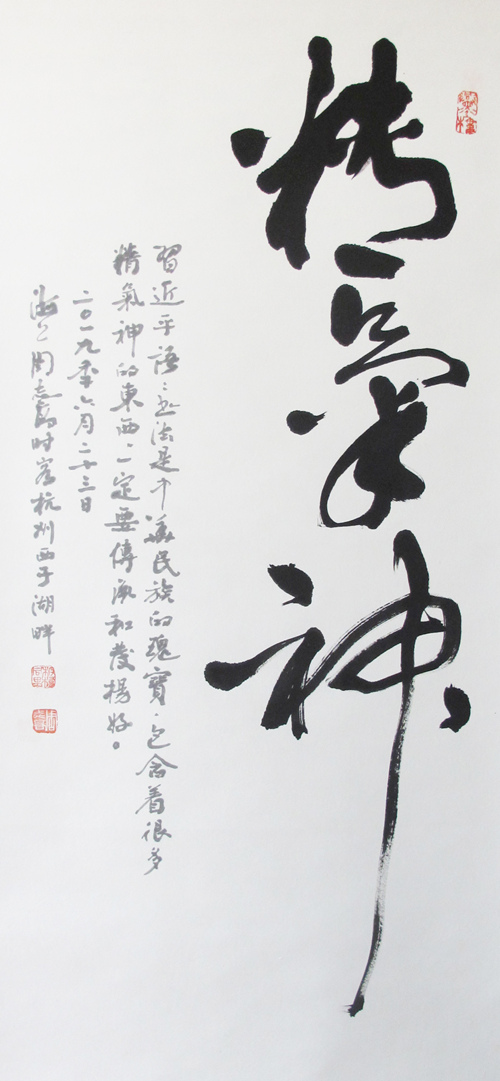 精氣神
習近平語：書法是中華民族的瑰寶，包含着很多
精氣神的東西，一定要傳承和發揚好。
二〇一九年六月二十三日
周志高时客杭州西子湖畔